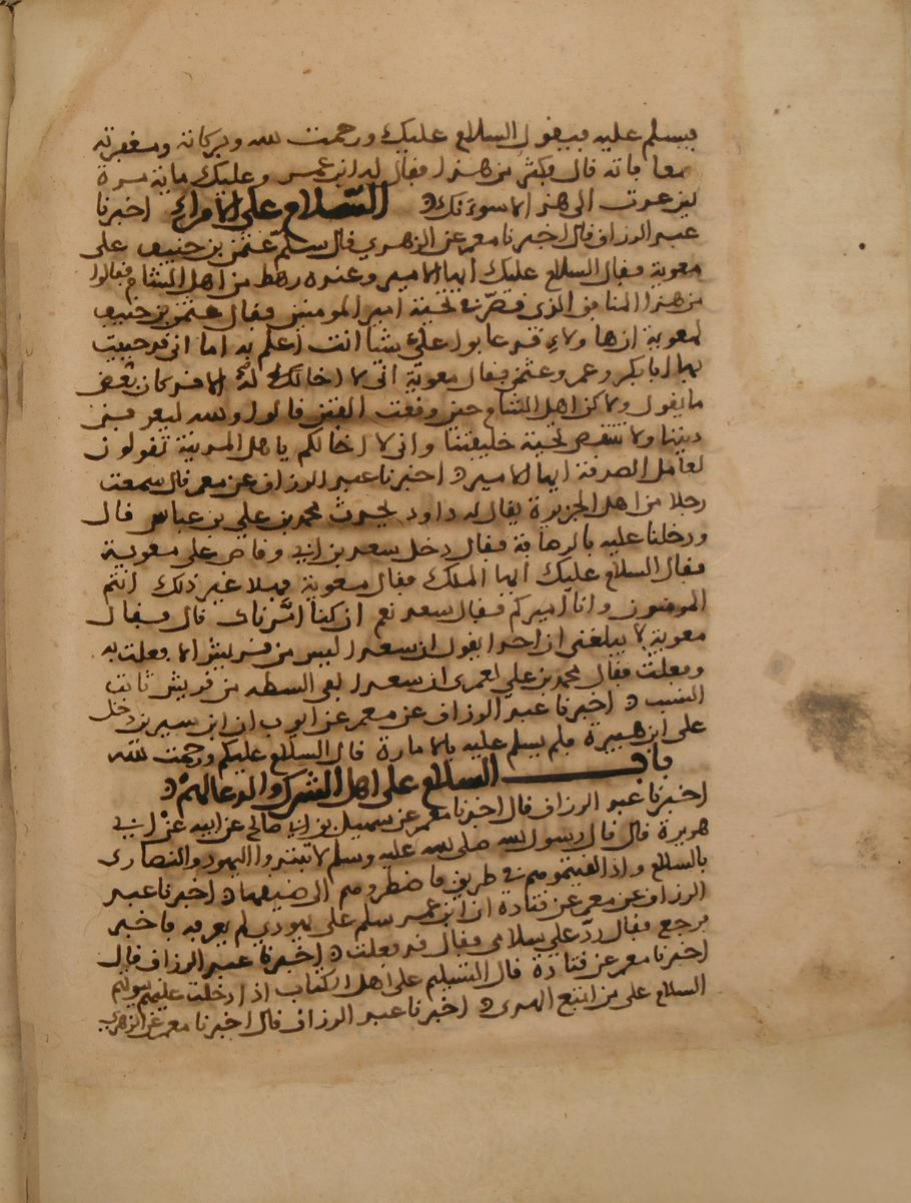 فيسلم عليه فيقول السلام عليك ورحمت الله وبركاته ومغفرته
معافاته قال فكثر من هذا فقال له ابن عمر وعليك ماية مرة
لين عدت الى هذا لاسوءنك السلام على الامراء اخبرنا
عبد الرزاق قال اخبرنا معمر عن الزهري قال سلم عثمن بن حنيف على
معوية فقال السلام عليك ايها الامير وعنده رهط من اهل الشام فقالوا
من هذا المنافق الذي قصر بتحية امير المومنين فقال عثمن بن حنيف
لمعوية ان هاولاء قد عابوا علي شيا انت اعلم به اما اني قد حييت
بها ابا بكر وعمر وعثمن فقال معوية اني لا اخالك له الا قد كان بعض
ما يقول ولاكن اهل الشام حين وقعت الفتن قالوا والله ليعرفن
ديننا ولا تنتقص تحية خليفتنا واني لا اخالكم يا هل المدينة تقولون
لعامل الصدقة ايها الامير اخبرنا عبد الرزاق عن معمر قال سمعت
رجلا من اهل الجزيرة يقال له داود يحدث محمد بن علي بن عباس قال
ودخلنا عليه بالرصافة فقال دخل سعد بن ابي وقاص على معوية
فقال السلام عليك ايها الملك فقال معوية فهلا غير ذلك انتم
المومنون وانا اميركم فقال سعد نعم ان كنا امرناك قال فقال
معوية لا يبلغني ان احدا يقول ان سعدا ليس من قريش الا فعلت به
وفعلت فقال محمد بن علي لعمرى ان سعدا لفي السطه من قريش ثابت
النسب اخبرنا عبد الرزاق عن معمر عن ايوب ان ابن سيرين دخل
على ابن هبيرة فلم يسلم عليه بالامارة قال السلام عليكم ورحمت الله
باب السلام على اهل الشرك والدعا لهم
اخبرنا عبد الرزاق قال اخبرنا معمر عن سهيل بن ابي صالح عن ابيه عن ابي
هريرة قال قال رسول الله صلى الله عليه وسلم لا تبتدوا اليهود والنصارى
بالسلام واذا لقيتموهم في طريق فاضطروهم الى ضيقها اخبرنا عبد
الرزاق عن معمر عن قتادة ان ابن عمر سلم على يهودي لم يعرفه فاخبر
فرجع فقال رد علي سلامي فقال قد فعلت اخبرنا عبد الرزاق قال
اخبرنا معمر عن قتادة قال التسليم على اهل الكتاب اذا دخلت عليهم بيوتهم
السلام على من اتبع الهدى اخبرنا عبد الرزاق قال اخبرنا معمر عن الزهري